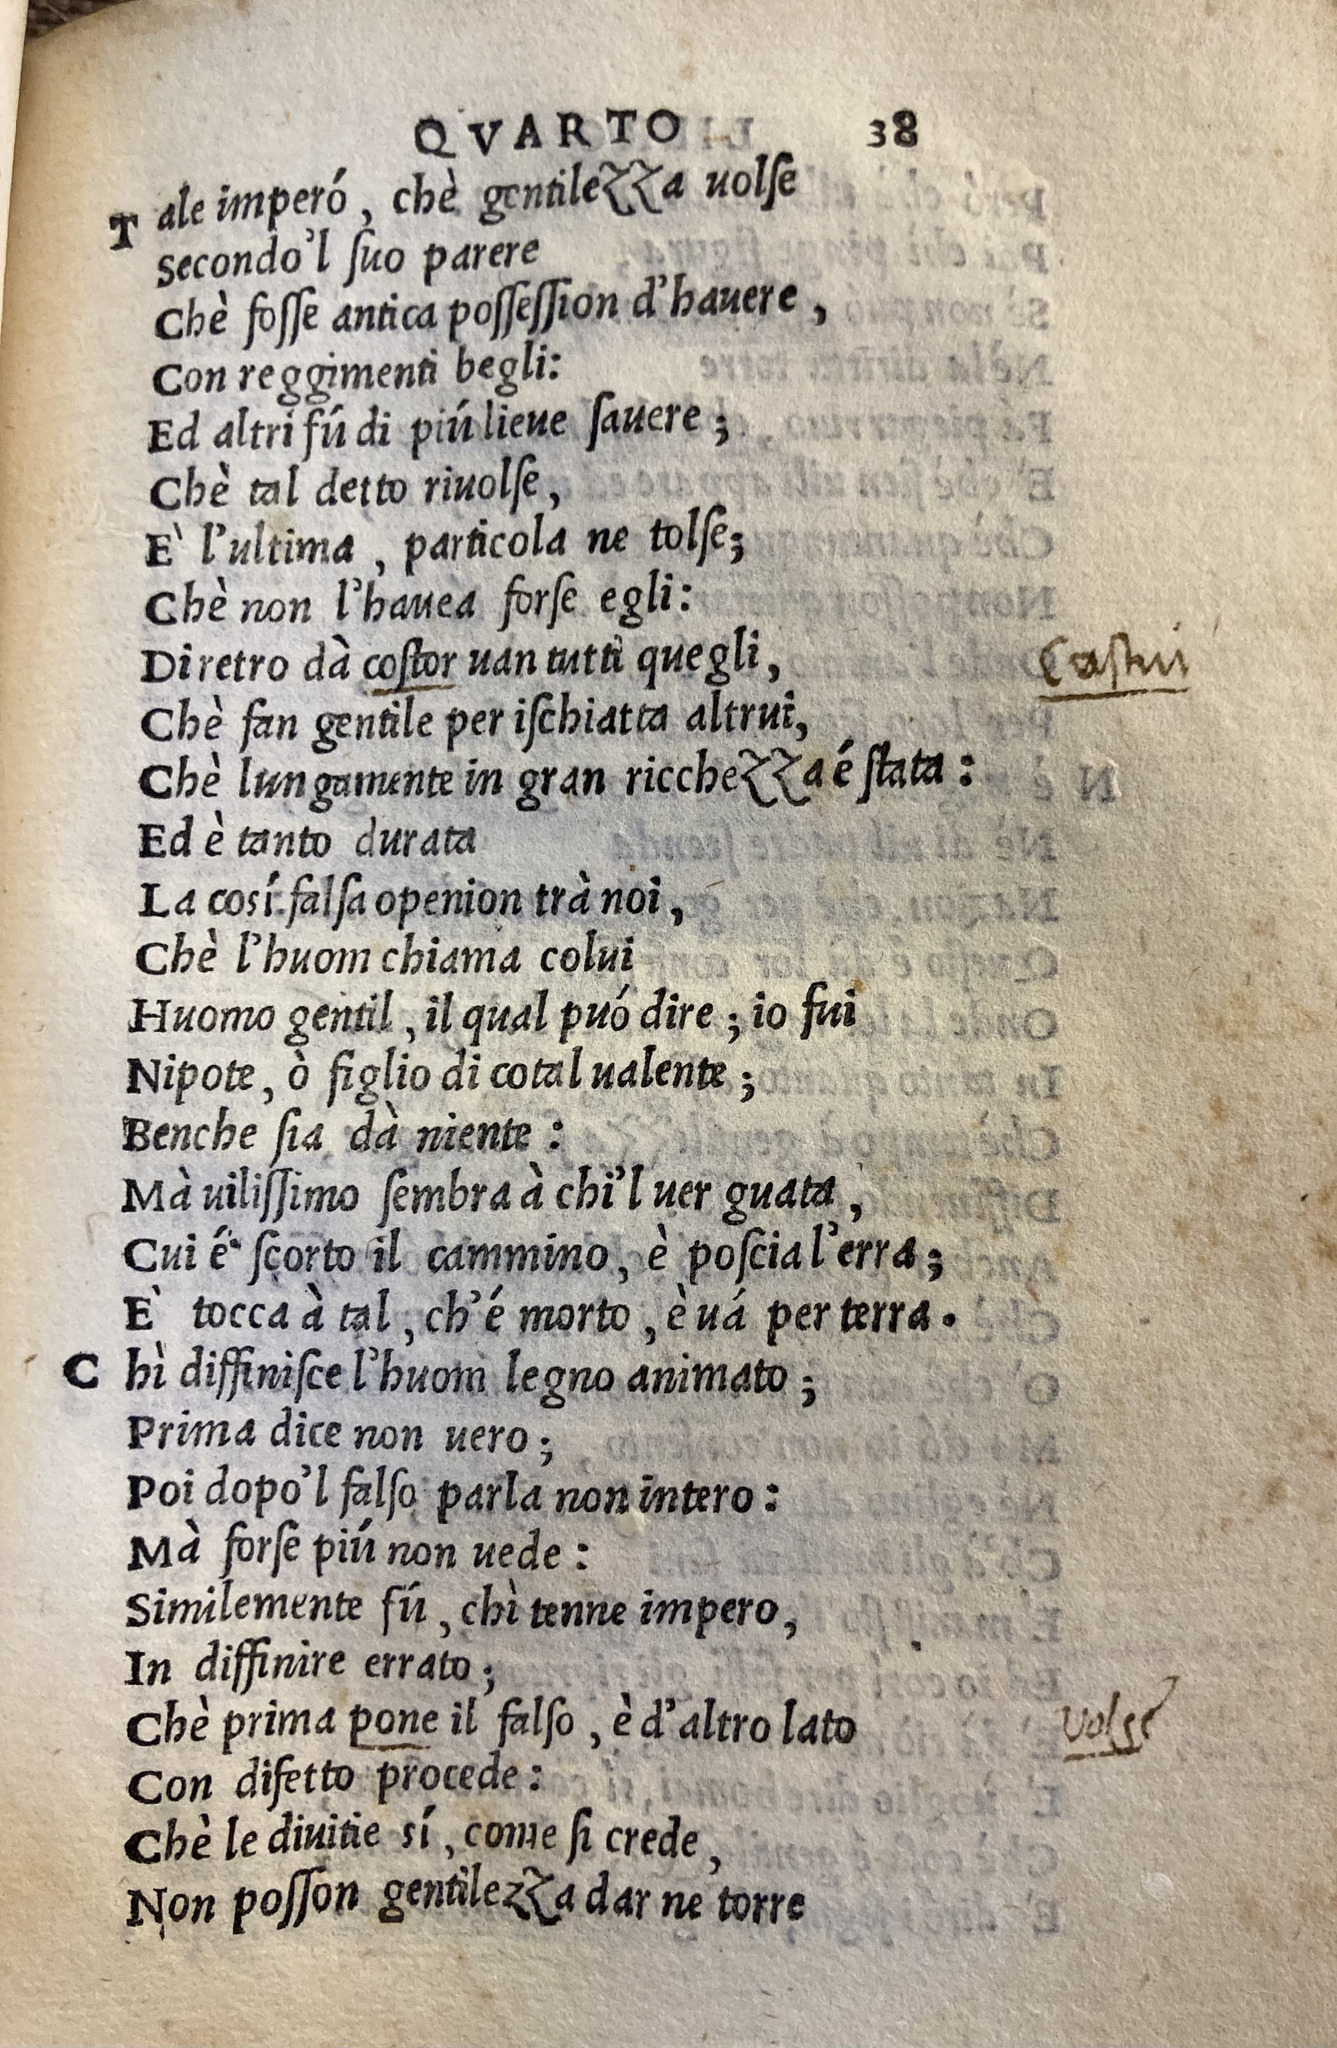 QVARTO 38
Tale imperó, chè gentilezza uolſe
Secondo'l ſuo parere
Chè foſſe antica poſſeſſion d'hauere,
Con reggimenti begli:
Ed altri fú di piú lieue ſauere;
Chè tal detto riuolſe,
E` l'ultima, particola ne tolſe;
Chè non l'hauea forſe egli:
Diretro dà coſtor uan tutti quegli,
Chè fan gentile per iſchiatta altrui,
Chè lungamente in gran ricchezza é ſtata:
Ed è tanto durata
La cosí falſa openion trà noi,
Chè l'huom chiama colui
Huomo gentil, il qual puó dire; io fui
Nipote, ò figlio di cotal ualente;
Benche ſia dà niente:
Mà uiliſſimo ſembra à chi'l uer guata,
Cui é ſcorto il cammino, è poſcia l'erra;
E` tocca à tal, ch'é morto, è uá per terra.
Chì diffiniſce l'huom legno animato;
Prima dice non uero;
Poi dopo'l falſo parla non intero:
Mà forſe piú non uede:
Similemente fú, chì tenne impero,
In diffinire errato;
Chè prima pone il falſo, è d'altro lato
uolse
Con difetto procede:
Chè le diuitie sí, come ſi crede,
Non poſſon gentilezza dar ne torre